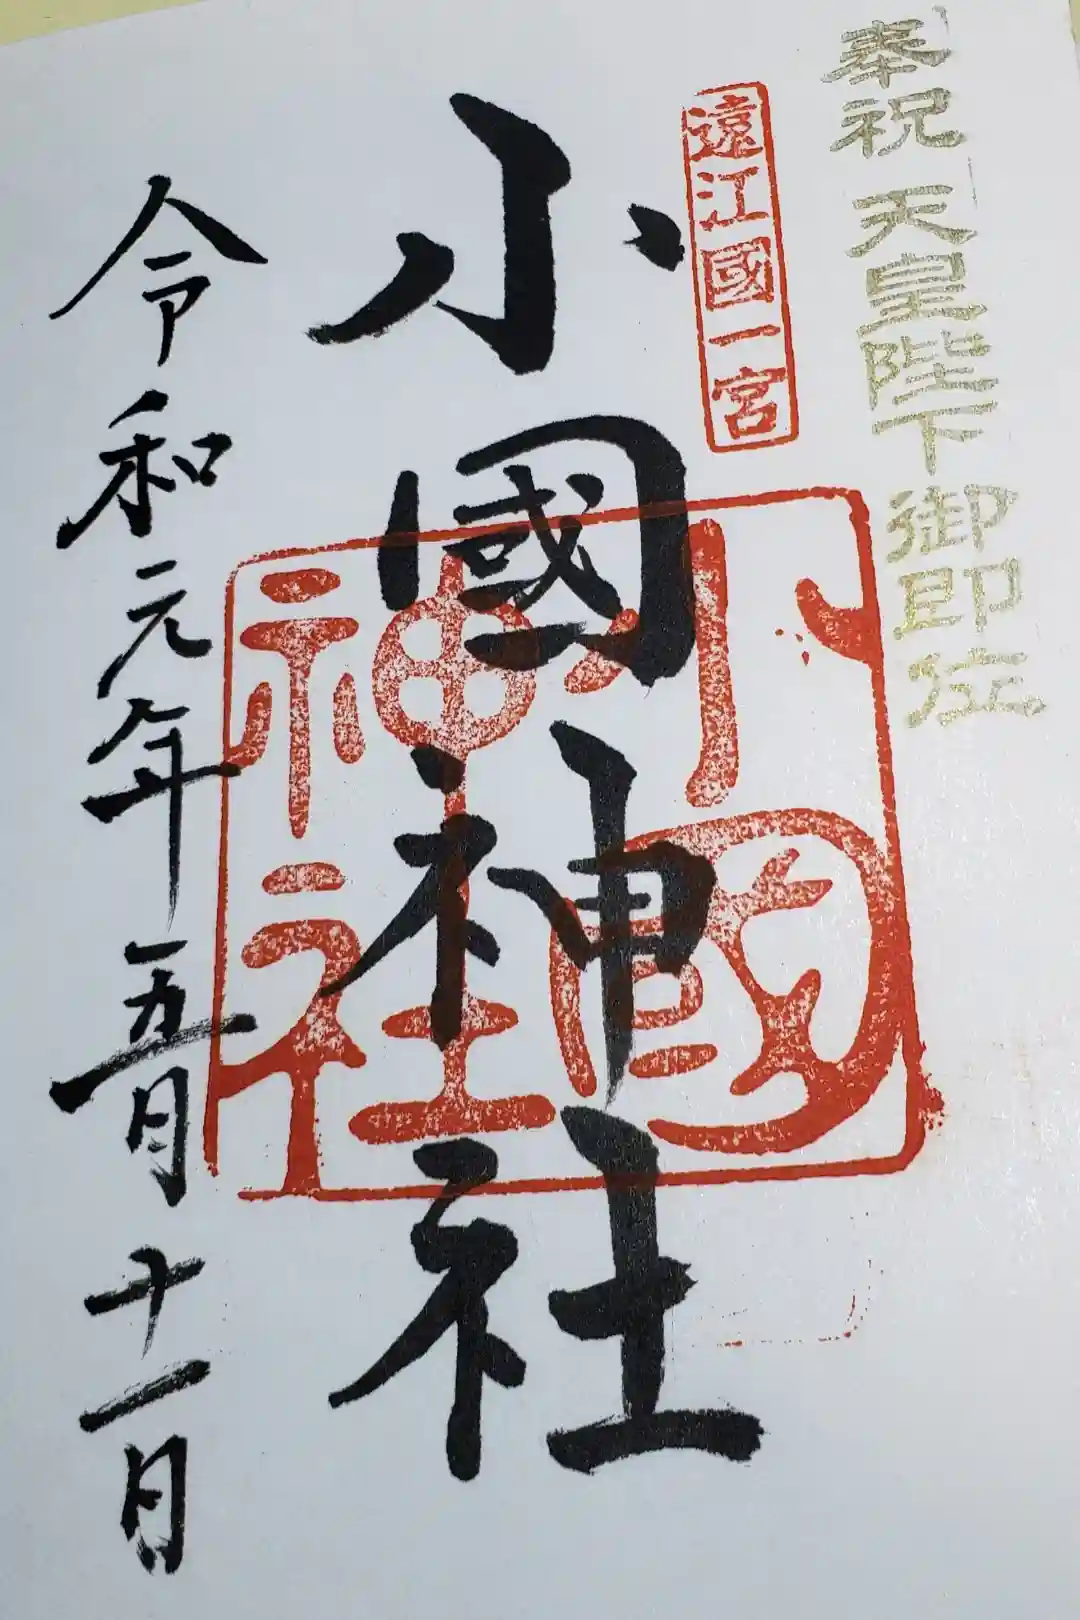 奉祝 天皇陛下御即位
遠江國一宮
小國神社
小國神社
令和元年五月十一日